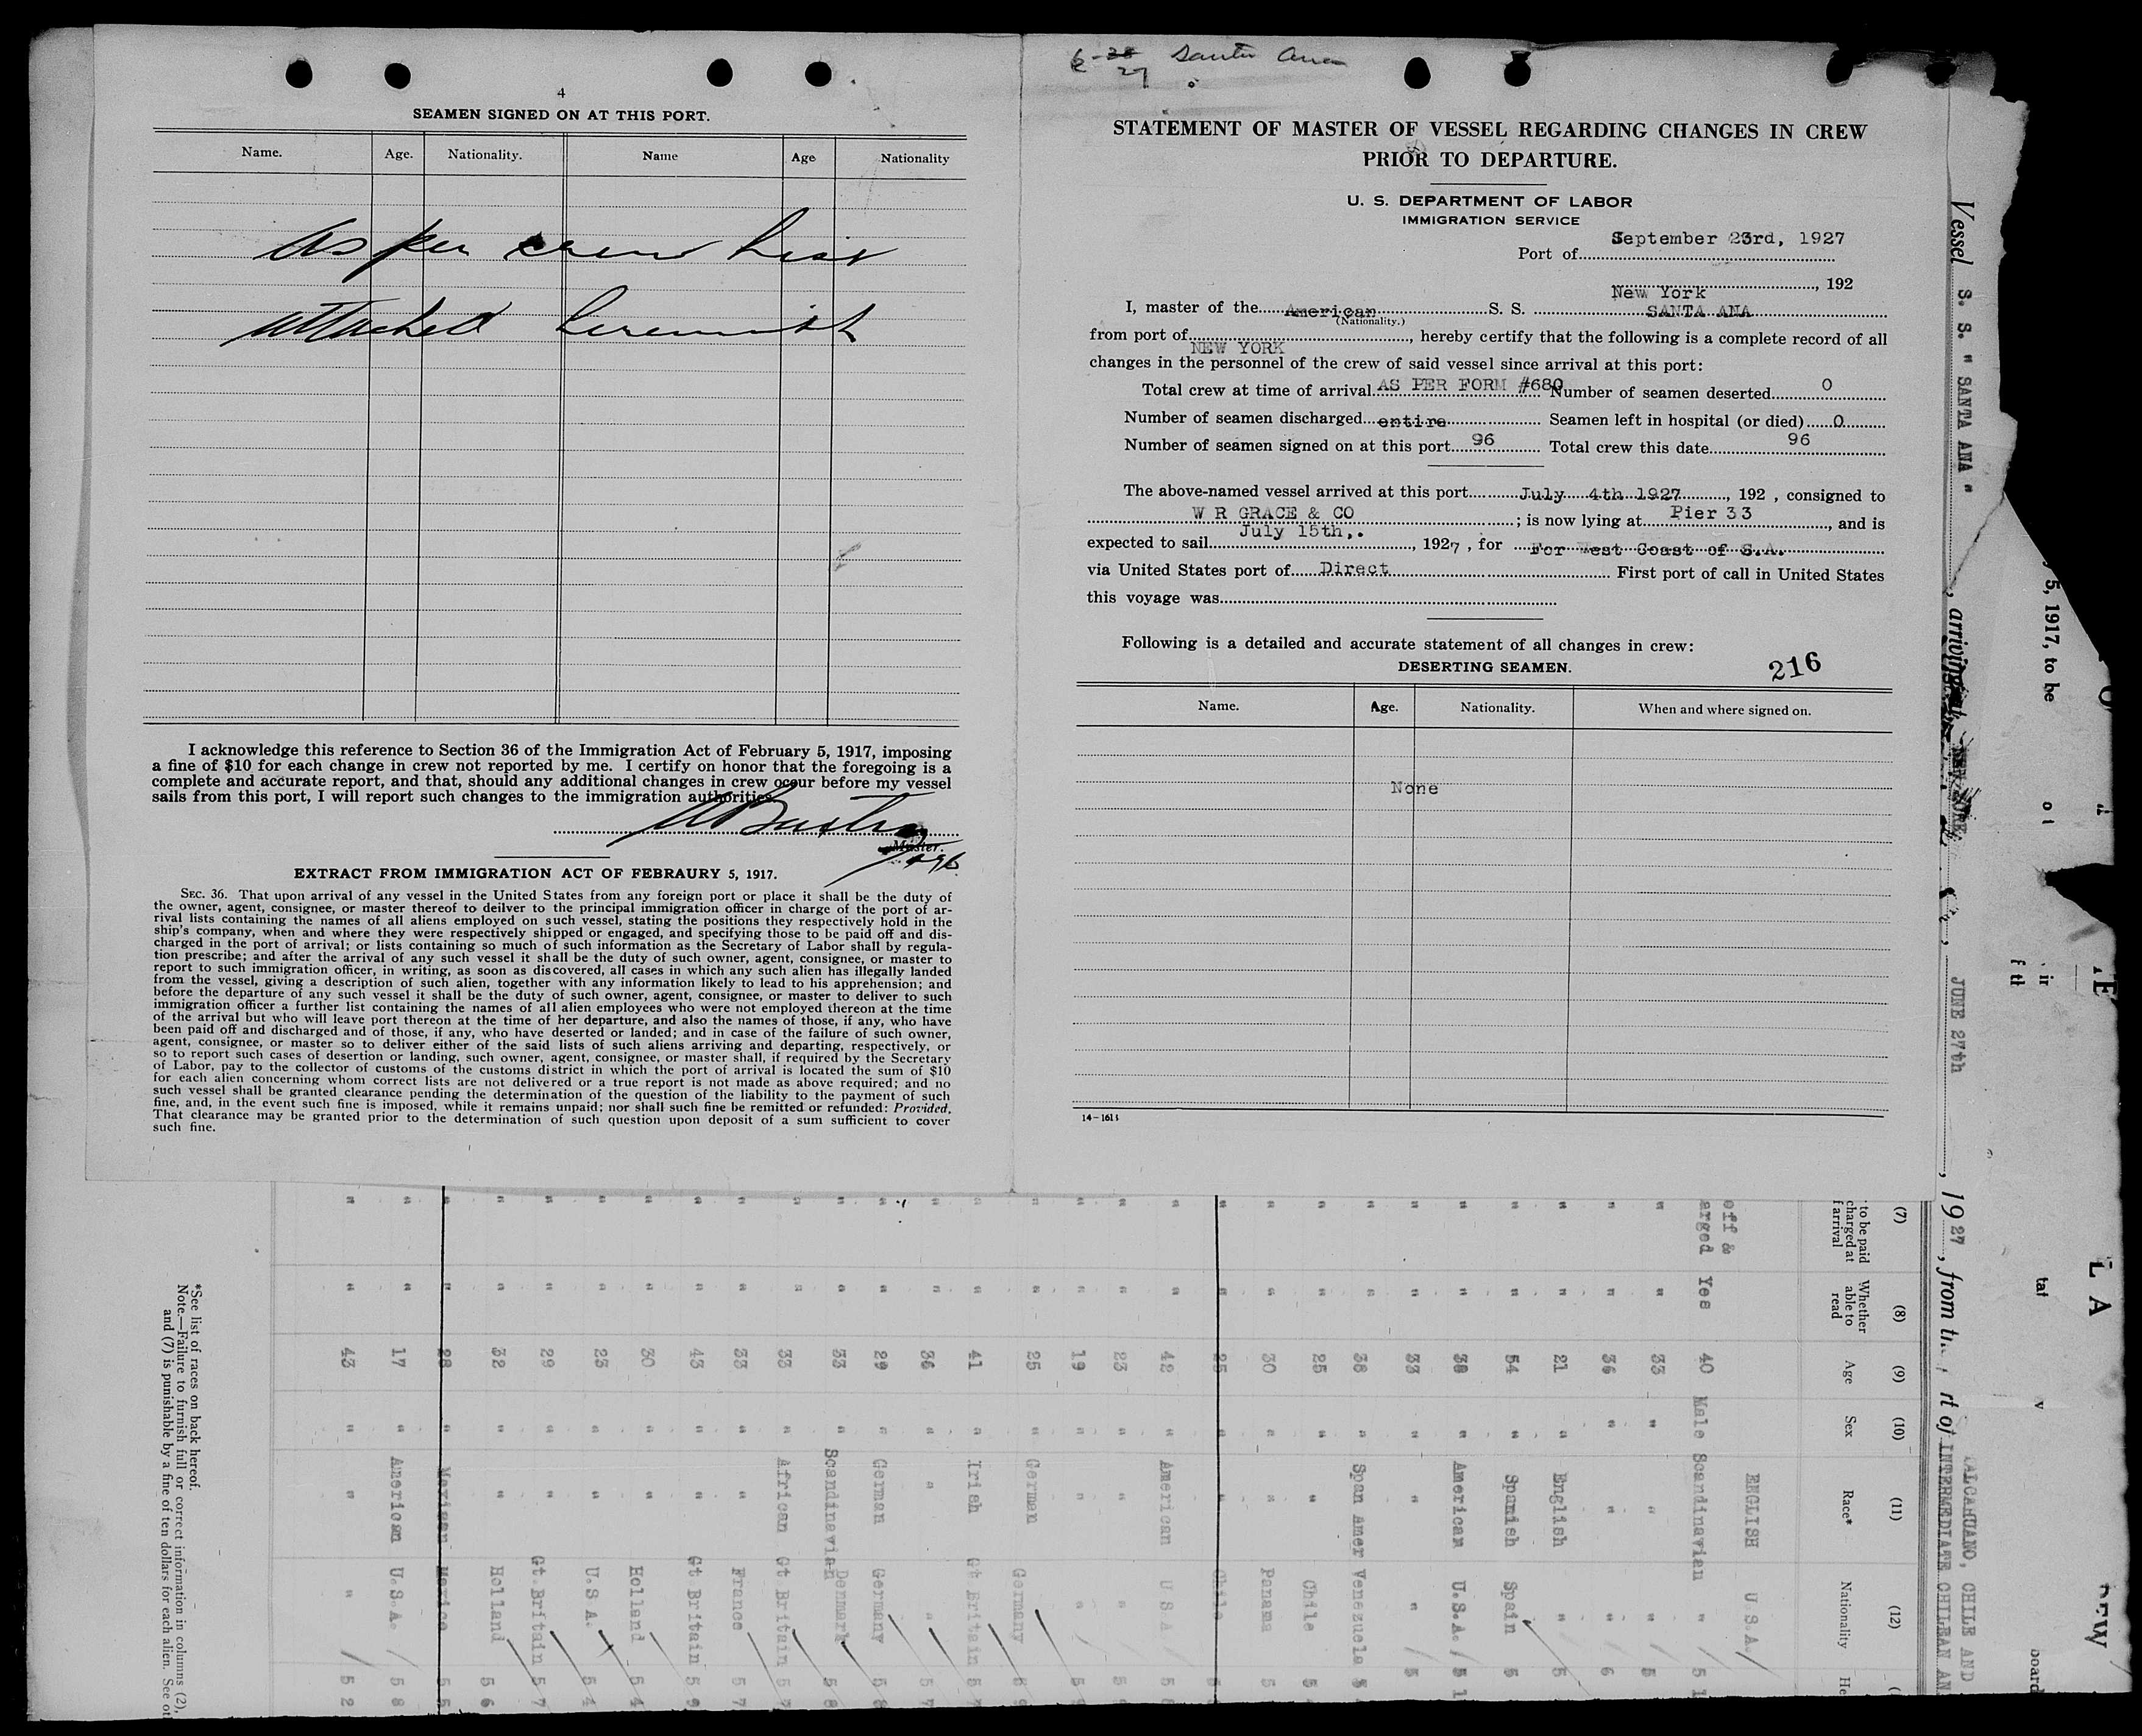 4
SEAMEN SIGNED ON AT THIS PORT.
Name. Age. Nationality. Name Age Nationality
As per crew list
attached herewith
I acknowledge this reference to Section 36 of the Immigration Act of February 5, 1917, imposing
a fine of $10 for each change in crew not reported by me. I certify on honor that the foregoing is a
complete and accurate report, and that, should any additional changes in crew occur before my vessel
sails from this port, I will report such changes to the immigration authorities.
Master.
EXTRACT FROM IMMIGRATION ACT OF FEBRAURY 5, 1917.
SEC. 36. That upon arrival of any vessel in the United States from any foreign port or place it shall be the duty of
the owner, agent, consignee, or master thereof to deilver to the principal immigration officer in charge of the port of ar-
rival lists containing the names of all aliens employed on such vessel, stating the positions they respectively hold in the
ship's company, when and where they were respectively shipped or engaged, and specifying those to be paid off and dis-
charged in the port of arrival; or lists containing so much of such information as the Secretary of Labor shall by regula-
tion prescribe; and after the arrival of any such vessel it shall be the duty of such owner, agent, consignee, or master to
report to such immigration officer, in writing, as soon as discovered, all cases in which any such alien has illegally landed
from the vessel, giving a description of such alien, together with any information likely to lead to his apprehension; and
before the departure of any such vessel it shall be the duty of such owner, agent, consignee, or master to deliver to such
immigration officer a further list containing the names of all alien employees who were not employed thereon at the time
of the arrival but who will leave port thereon at the time of her departure, and also the names of those, if any, who have
been paid off and discharged and of those, if any, who have deserted or landed; and in case of the failure of such owner,
agent, consignee, or master so to deliver either of the said lists of such aliens arriving and departing, respectively, or
so to report such cases of desertion or landing, such owner, agent, consignee, or master shall, if required by the Secretary
of Labor, pay to the collector of customs of the customs district in which the port of arrival is located the sum of $10
for each alien concerning whom correct lists are not delivered or a true report is not made as above required; and no
such vessel shall be granted clearance pending the determination of the question of the liability to the payment of such
fine, and, in the event such fine is imposed, while it remains unpaid; nor shall such fine be remitted or refunded: Provided,
That clearance may be granted prior to the determination of such question upon deposit of a sum sufficient to cover
such fine.
6-28 Santa Ana
27
STATEMENT OF MASTER OF VESSEL REGARDING CHANGES IN CREW
PRIOR TO DEPARTURE.
U. S. DEPARTMENT OF LABOR
IMMIGRATION SERVICE
September 23rd, 1927
Port of
, 192
New York
I, master of the American S. S. SANTA ANA
(Nationality.)
from port of NEW YORK, hereby certify that the following is a complete record of all
changes in the personnel of the crew of said vessel since arrival at this port:
Total crew at time of arrival AS PER FORM #680 Number of seamen deserted 0
Number of seamen discharged entire Seamen left in hospital (or died) 0
Number of seamen signed on at this port 96 Total crew this date 96
The above-named vessel arrived at this port July 4th 1927, 192 , consigned to
W R GRACE & CO ; is now lying at Pier 33, and is
expected to sail July 15th,. , 1927, for For West Coast of S.A.
via United States port of Direct First port of call in United States
this voyage was
Following is a detailed and accurate statement of all changes in crew:
DESERTING SEAMEN. 216
Name. Age. Nationality. When and where signed on.
None
14-1611
Vessel S. S. " SANTA ANA " , arriving at NEW YORK, JUNE 27th , 1927, from the rt of INTERMEDIATE CHILEAN AN
ALCAHUANO, CHILE AND
5, 1917, to be
(7) (8) (9) (10) (11) (12)
to be paid
charged at
f arrival
Whether
able to
read
Age Sex Race* Nationality He
ENGLISH U S.A.
off &
arged Yes 40 Male Scandinavian " 5 1
" " 33 " " " 5
" " 36 " " " 6
" " 21 " English " 5
" " 54 " Spanish Spain 5
" " 38 " American U.S.A. 5 1
" " 33 " " " 5
" " 38 " Span Amer Venezuela 5
" " 25 " " Chile 5
" " 30 " " Panama 5
" " 25 " " Chile 5
" " 42 " American U S A 5
" " 23 " " " 5
" " 19 " " " 5
" " 25 " German Germany 5
" " 41 " Irish Gt Britain 5 7
" " 36 " " " 5 7
" " 29 " German Germany 5 8
" " 33 " Scandinavian Denmark 5 8
" " 33 " African Gt Britain 5 7
" " 33 " " France 5 7
" " 43 " " Gt Britain 5 9
" " 30 " " Holland 5 4
" " 23 " " U.S A. 5 4
" " 29 " " Gt.Britain 5 7
" " 32 " " Holland 5 6
" " 28 " Mexican Mexico 5 5
" " 17 " American U.S.A. 5 8
" " 43 " " " 5 2
*See list of races on back hereof.
Note.—Failure to furnish full or correct information in columns (2),
and (7) is punishable by a fine of ten dollars for each alien. See ot